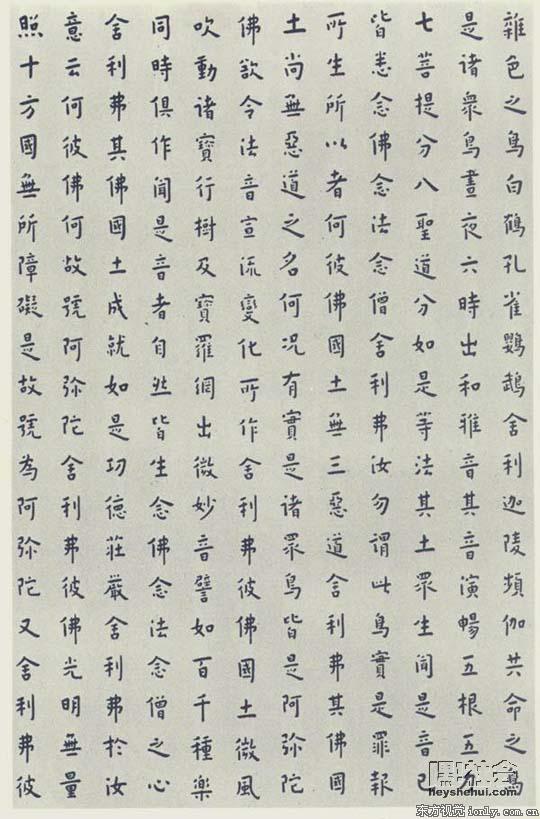 雜色之鳥白鶴孔雀鸚鵡舍利迦陵頻伽共命之鳥
是諸衆鳥晝夜六時出和雅音其音演暢五根五力
七菩提分八聖道分如是等法其土眾生聞是音已
皆悉念佛念法念僧舍利弗汝勿謂此鳥實是罪報
所生所以者何彼佛國土無三惡道舍利弗其佛國
土尚無惡道之名何況有實是諸眾鳥皆是阿弥陀
佛欲令法音宣流變化所作舍利弗彼佛國土微風
吹動諸寶行樹及寶羅網出微妙音譬如百千種樂
同時俱作聞是音者自然皆生念佛念法念僧之心
舍利弗其佛國土成就如是功德莊嚴舍利弗於汝
意云何彼佛何故號阿弥陀舍利弗彼佛光明無量
照十方國無所障礙是故號為阿弥陀又舍利弗彼
heyshehui.com
东方视觉 ionly.com.cn